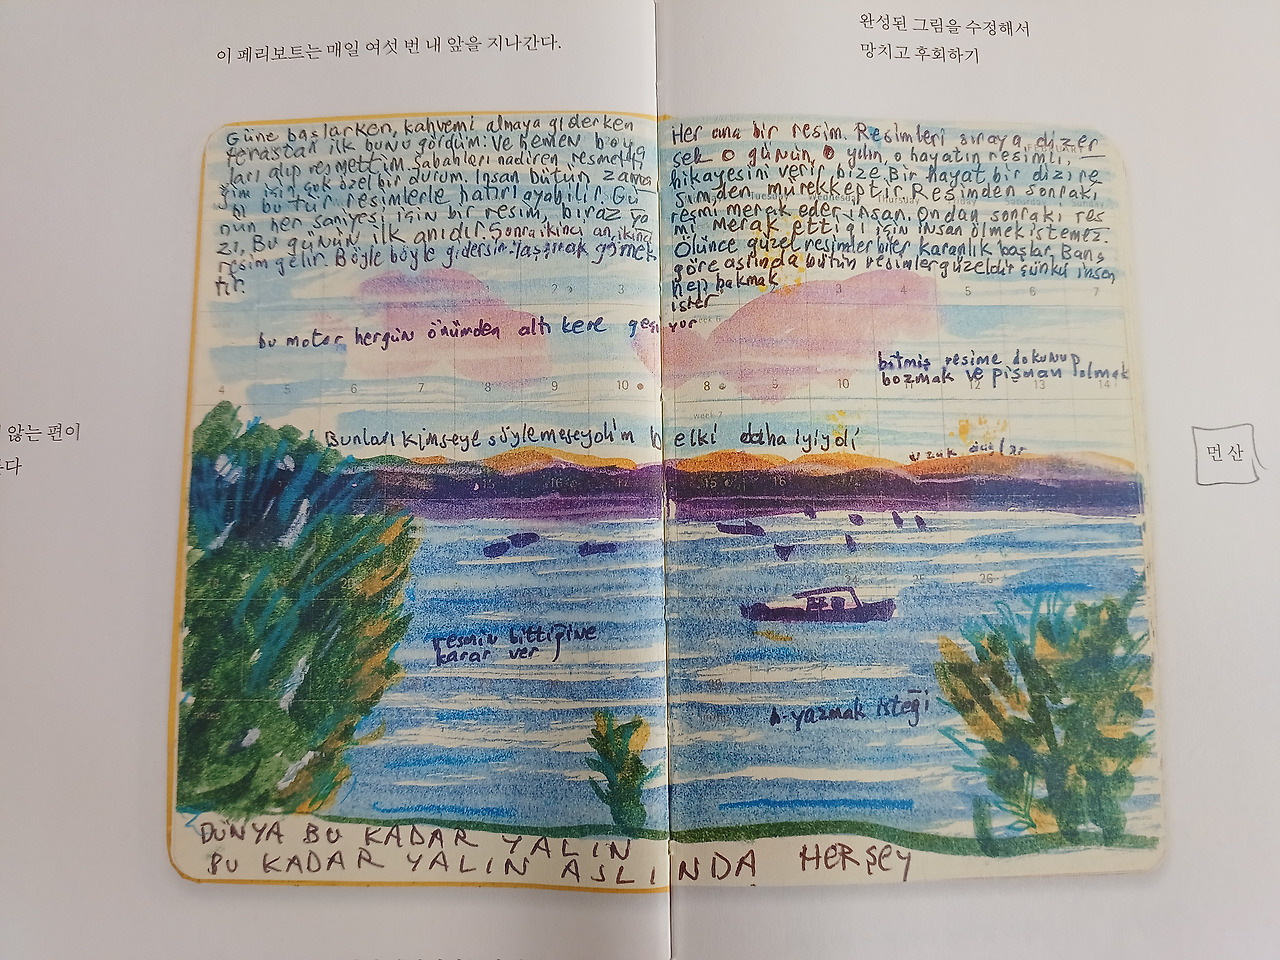 이 페리보트는 매일 여섯 번 내 앞을 지나간다.
완성된 그림을 수정해서
망치고 후회하기
Güne başlarken, kahvemi almaya giderken
terastan ilk bunu gördüm. Ve hemen boya
ları alıp resmettim. Sabahları nadiren resmetti
ğim için çok özel bir durum. İnsan bütün zama
nı bu tür resimlerle hatırlayabilir. Gü
nün her saniyesi için bir resim, biraz ya
zı. Bu günün ilk anıdır. Sonra ikinci an, ikinci
resim gelir. Böyle böyle gidersin
görmek
tir.
Her ana bir resim. Resimleri sıraya dizer
sek o günün, o yılın, o hayatın resimli,
hikayesini verir bize. Bir hayat bir dizi re
simden mürekkeptir. Resimden sonraki
resmi merak eder insan. Ondan sonraki res
mi merak ettiği için insan ölmek istemez.
Ölünce güzel resimler biter karanlık başlar. Bana
göre aslında bütün resimler güzeldir çünkü insan
hep bakmak
ister
bu motor hergün önümden altı kere geçi
yor
bitmiş resime dokunup
bozmak ve pişman olmak
Bunları kimseye söylemeseydim belki daha iyiydi
uzak dağlar
않는 편이
먼 산
resmin bittiğine
karar ver
yazmak isteği
DÜNYA BU KADAR YALIN
BU KADAR YALIN ASLINDA HERŞEY
FEBRUARY
Tuesday Wednesday Thursday Friday
2 3 4 5 6 7
week 6
4 5 6 7 8 9 10 8 9 10 12 13 14
week 7
15 16 17 15 16 17
24 25 26
notes